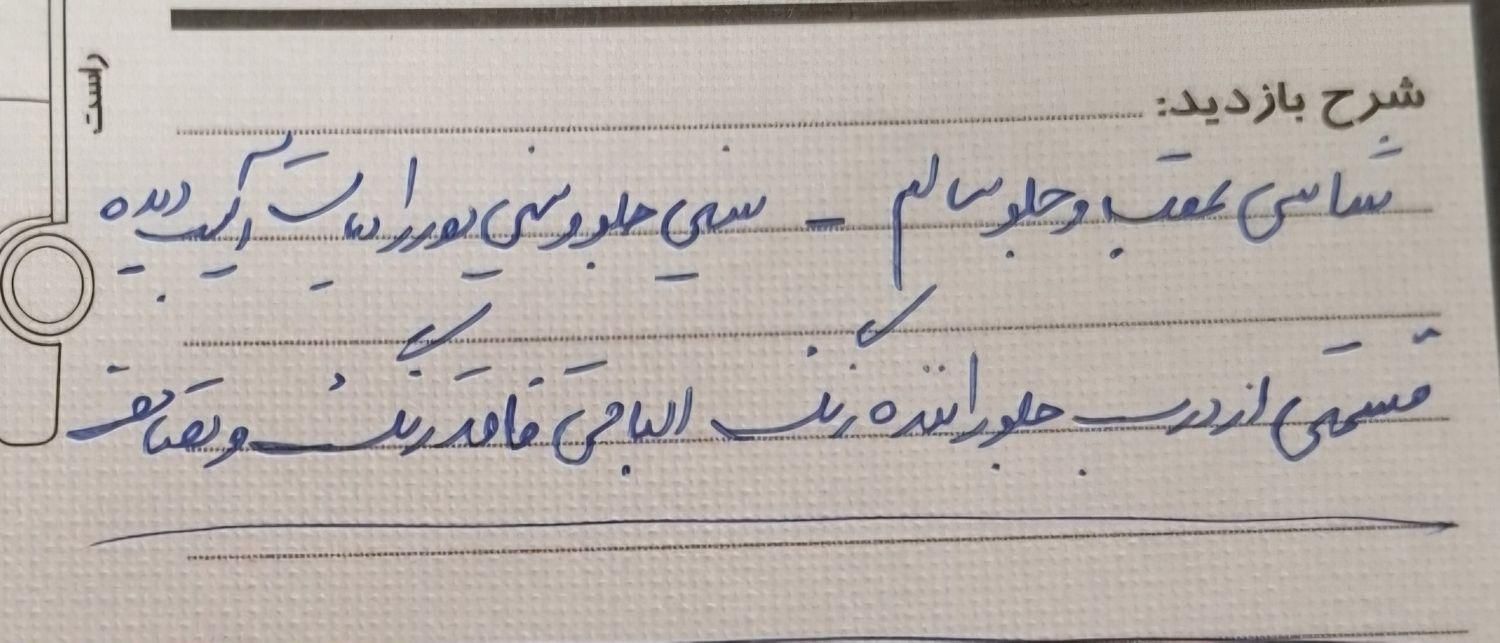 شرح بازدید:
راست
شاسی عقب و جلو سالم - سینی جلو و سینی آسیب دیده
قسمتی از درب جلو راننده رنگ الباقی فاقد رنگ و تصادف